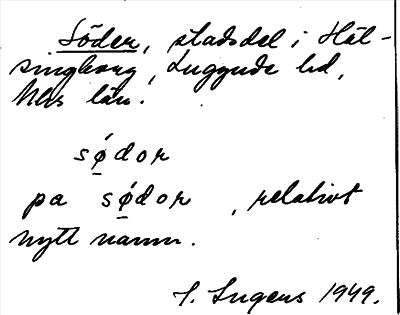 Söder, stadsdel i Häl-
singborg, Luggude hd,
Mhs län.
sǿ̱dor
pa sǿ̱dor, relativt
nytt namn.
S. Ingers 1949.